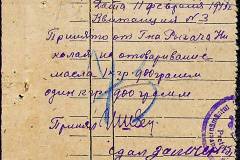 Дата 11 февраля 194
Квитанция N 3
Принято от Г-на Рыгала Ни
колая на отоваривание
масла 1 кгр 900 грамм
один кгр 900 грамм
Принял
сдал